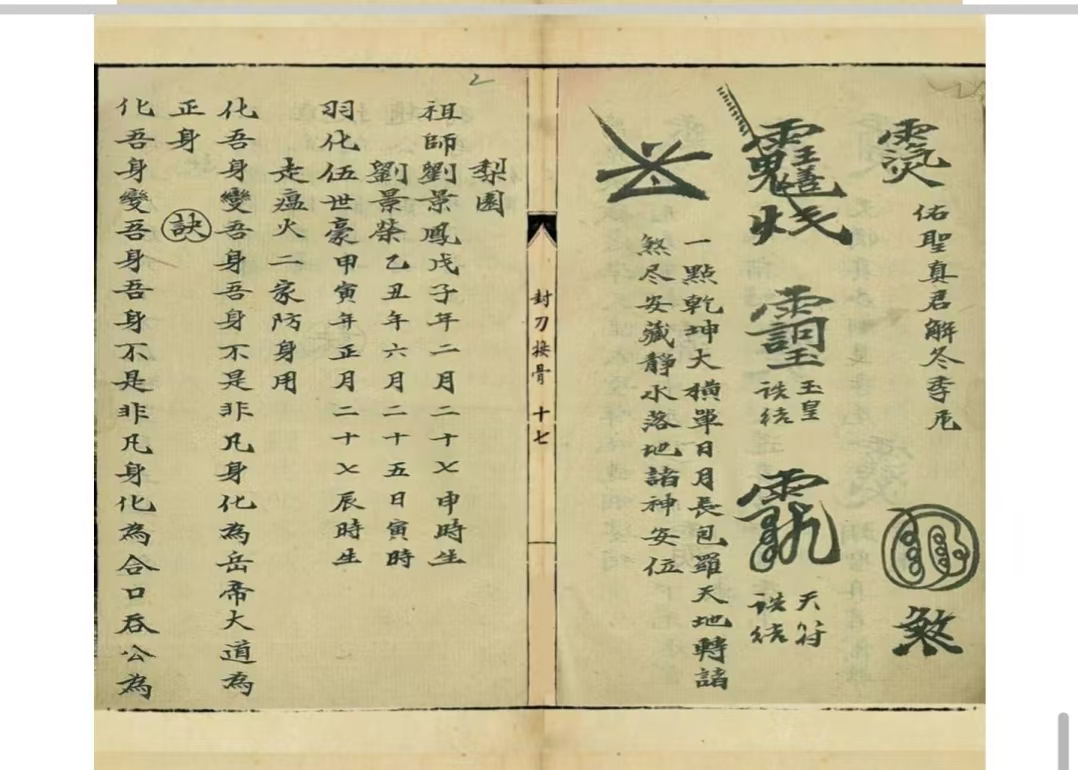 佑聖真君解冬季厄
煞
玉皇
天符
一點乾坤大橫單日月長包羅天地轉諸
煞尽安藏靜水落地諸神安位
封刀接骨 十七
梨園
祖師劉景鳳戊子年二月二十七申時生
劉景榮乙丑年六月二十五日寅時
羽化伍世豪甲寅年正月二十七辰時生
走瘟火二家防身用
化吾身變吾身吾身不是非凡身化為岳帝大道為
正身 訣
化吾身變吾身吾身不是非凡身化為合口吞公為